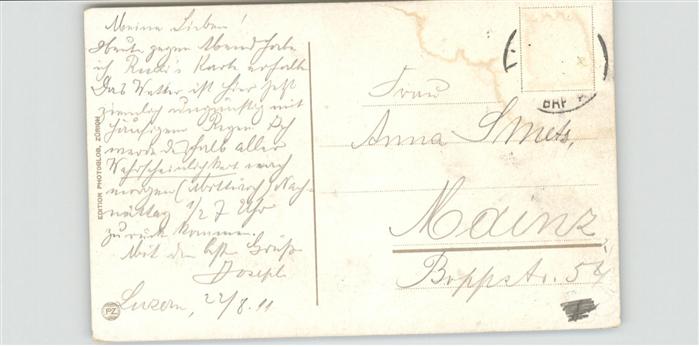 Meine Lieben!
Heute gegen Abend habe
ich Rudi's Karte erhalten
Das Wetter ist hier jetzt
ziemlich ungünstig mit
häufigem Regen Ich
werde deshalb aller
Wahrscheinlichkeit nach
morgen (Mittwoch) Nach-
mittag 1/2 7 Uhr
zurück kommen.
Mit den besten Grüßen
Joseph
Luzern, 22/8. 11
EDITION PHOTOGLOB, ZÜRICH
PZ
Frau
Anna Smets,
Mainz
Boppstr. 54